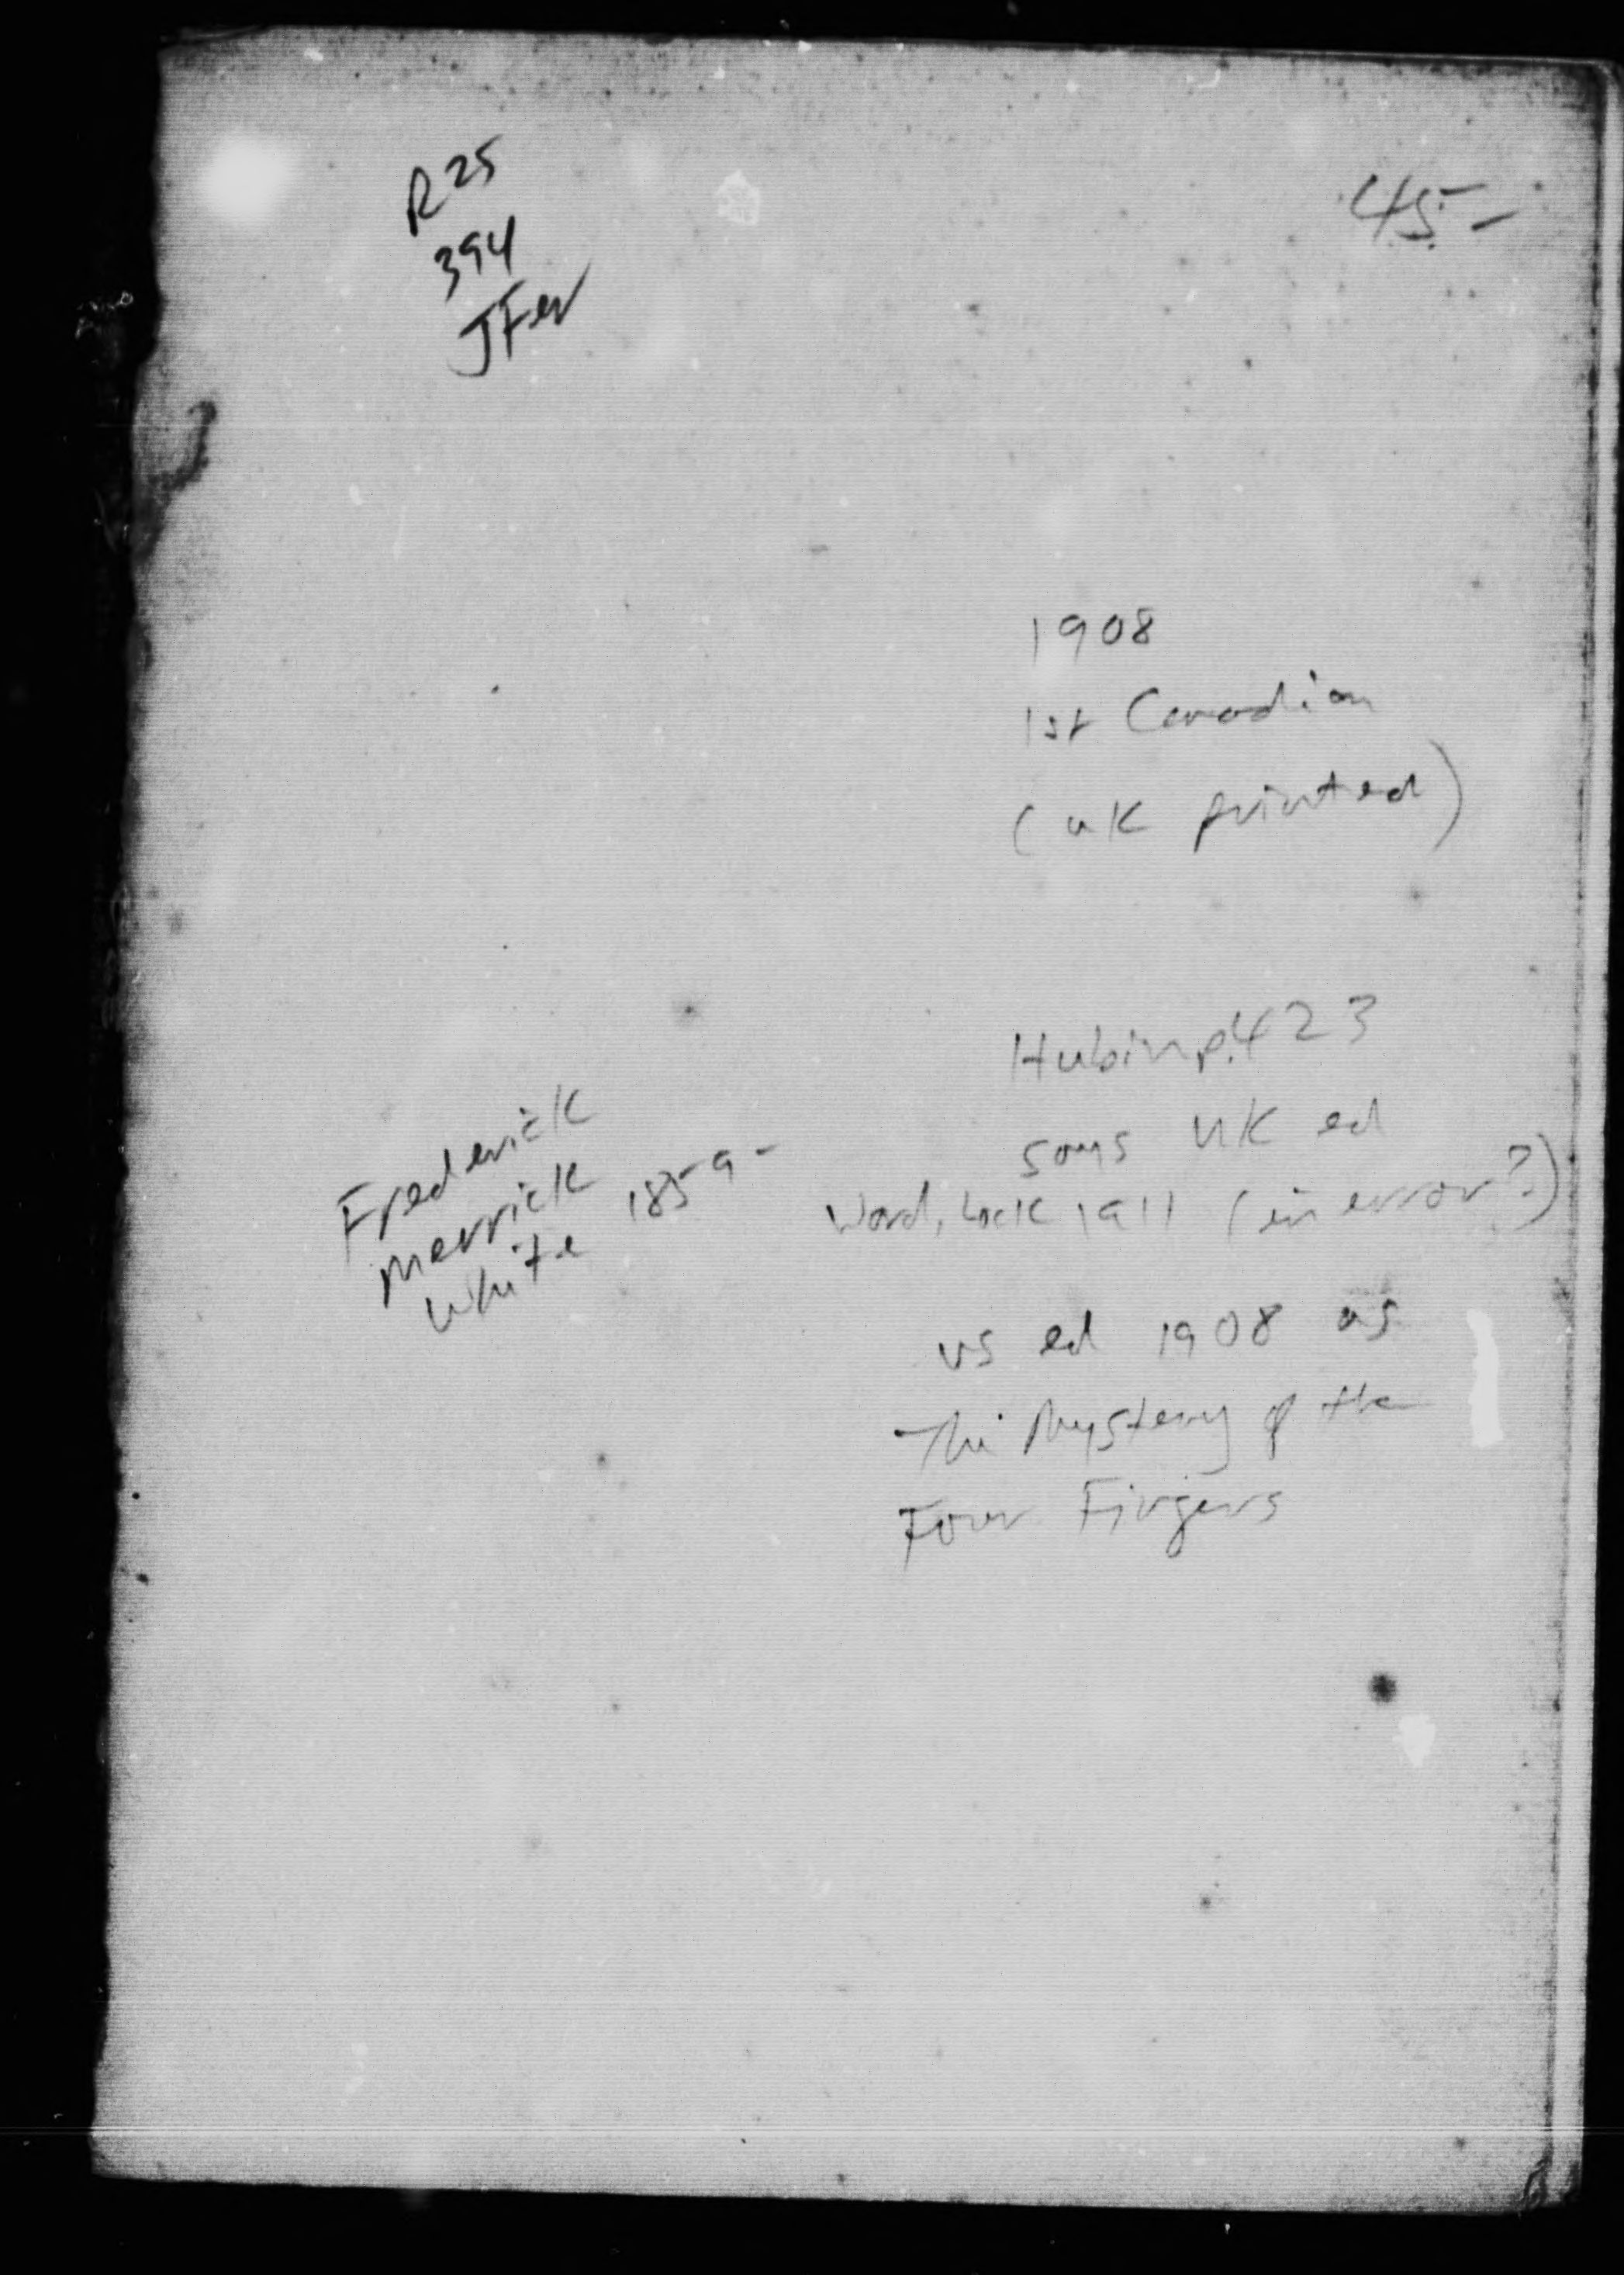 R 25
394
JFer
45-
1908
1st Canadian
(UK printed)
Hubin p.423
says UK ed
Ward, Lock 1911 (in error?)
US ed 1908 as
The Mystery of the
Four Fingers
Frederick
Merrick
White 1859-